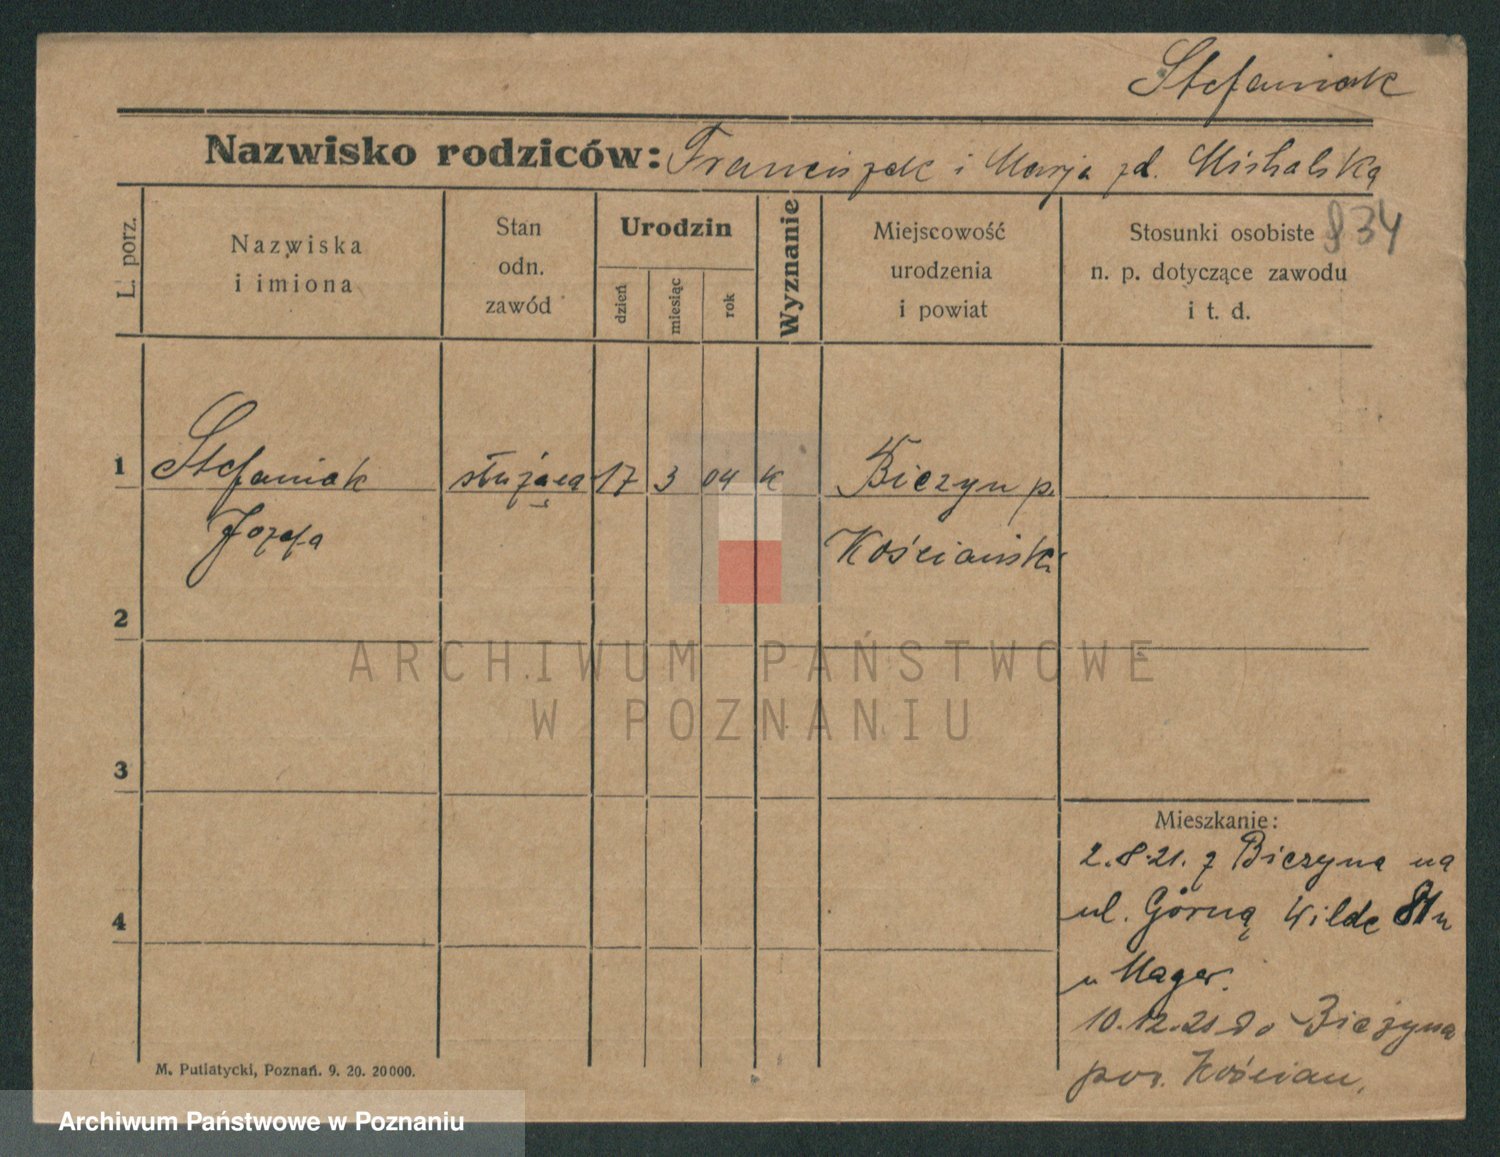 Stefaniak
Nazwisko rodziców: Franciszek i Marja zd. Michalska
834
L. porz.
Nazwiska
i imiona
Stan
odn.
zawód
Urodzin
dzień
miesiąc
rok
Wyznanie
Miejscowość
urodzenia
i powiat
Stosunki osobiste
n. p. dotyczące zawodu
i t. d.
1 Stefaniak służąca 17 3 04 k Bieczyn p.
Józefa Kościański
2
3
4
ARCHIWUM PAŃSTWOWE
W POZNANIU
Mieszkanie:
2.8.21. z Bieczyna na
ul. Górną Wildę 81
u Mager.
10.12.21 do Bieczyna
pow. Kościan.
M. Putiatycki, Poznań. 9. 20. 20000.
Archiwum Państwowe w Poznaniu